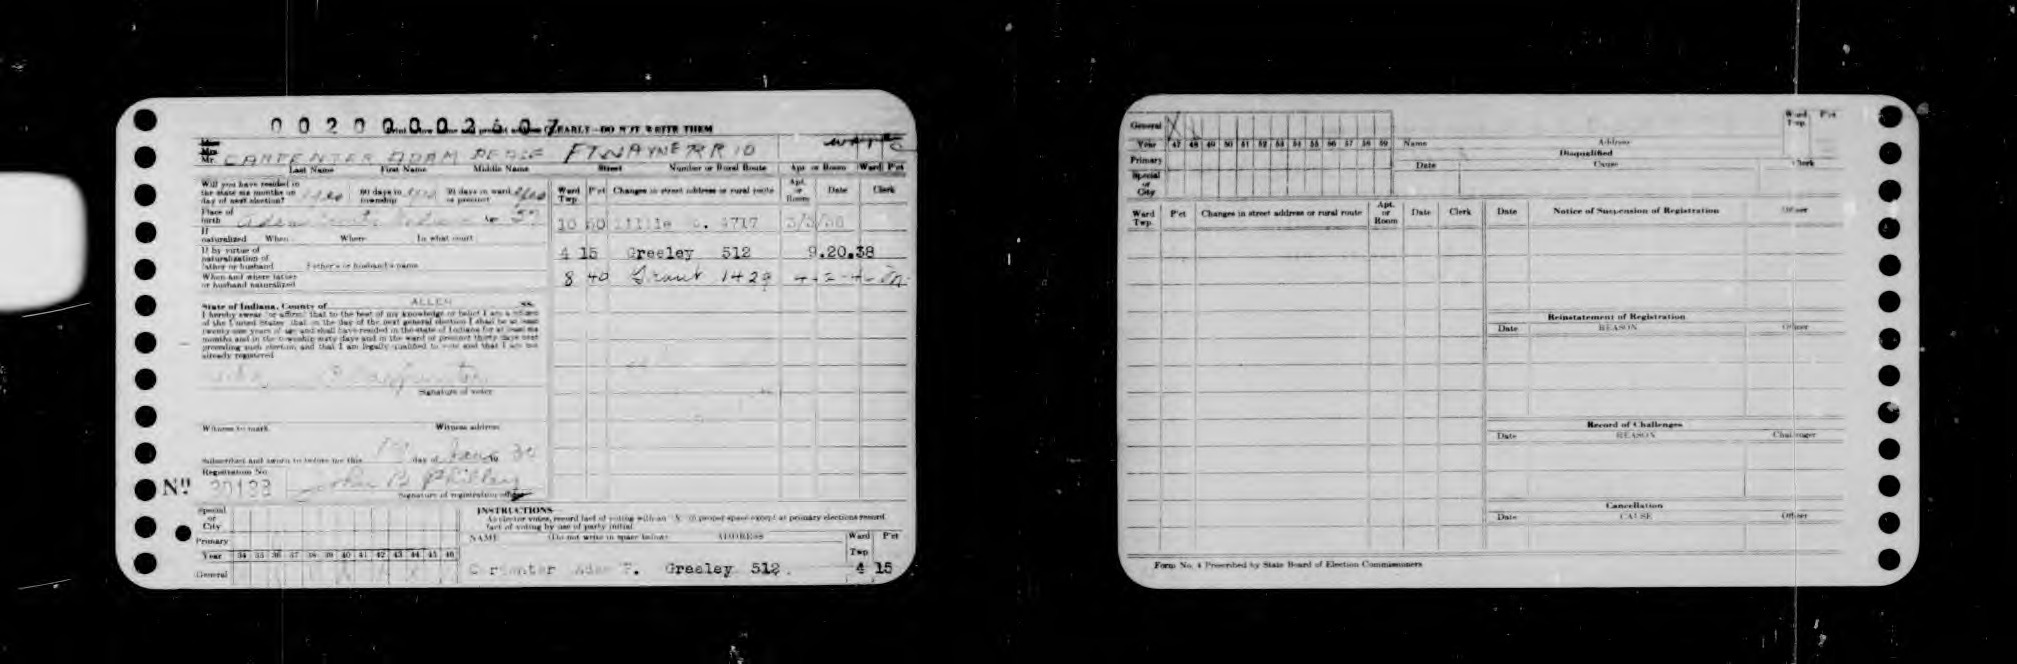 0 0 2 0 0 0 0 2 6 0 7
EARLY—DO NOT WRITE THEM
Mrs.
Mr. CARPENTER ADAM FT WAYNE R R 10
Last Name First Name Middle Name Street Number or Rural Route Apt. or Room Ward P'ct
Will you have resided in
the state six months on yes 60 days in yes 30 days in ward yes
day of next election? township or precinct
Place of
birth Adams County Indiana Age 57
If
naturalized When Where In what court
If by virtue of
naturalization of
father or husband Father's or husband's name
When and where father
or husband naturalized
State of Indiana, County of ALLEN ss.
I hereby swear (or affirm) that to the best of my knowledge or belief I am a citizen
of the United States, that on the day of the next general election I shall be at least
twenty-one years of age and shall have resided in the state of Indiana for at least six
months and in the township sixty days and in the ward or precinct thirty days next
preceding such election, and that I am legally qualified to vote and that I am not
already registered
Signature of voter
Witness to mark Witness address
Subscribed and sworn to before me this day of 19
Registration No.
Nº 30133 John B Philley
Signature of registration officer
Ward Twp P'ct Changes in street address or rural route Apt. or Room Date Clerk
10 60 4717
4 15 Greeley 512 9.20.38
8 40 Grant 1429
INSTRUCTIONS—
As elector votes, record fact of voting with an "X" in proper space except at primary elections record
fact of voting by use of party initial.
Special
or
City
Primary
Year 34 35 36 37 38 39 40 41 42 43 44 45 46
General
NAME (Do not write in space below) ADDRESS Ward Twp P'ct
Carpenter Adam P. Greeley 512 4 15
General X
Year 47 48 49 50 51 52 53 54 55 56 57 58 59
Primary
Special
or
City
Name Address Ward Twp. P'ct
Disqualified
Date Cause Clerk
Ward Twp. P'ct Changes in street address or rural route Apt. or Room Date Clerk
Date Notice of Suspension of Registration Officer
Reinstatement of Registration
Date REASON Officer
Record of Challenges
Date REASON Challenger
Cancellation
Date CAUSE Officer
Form No. 4 Prescribed by State Board of Election Commissioners